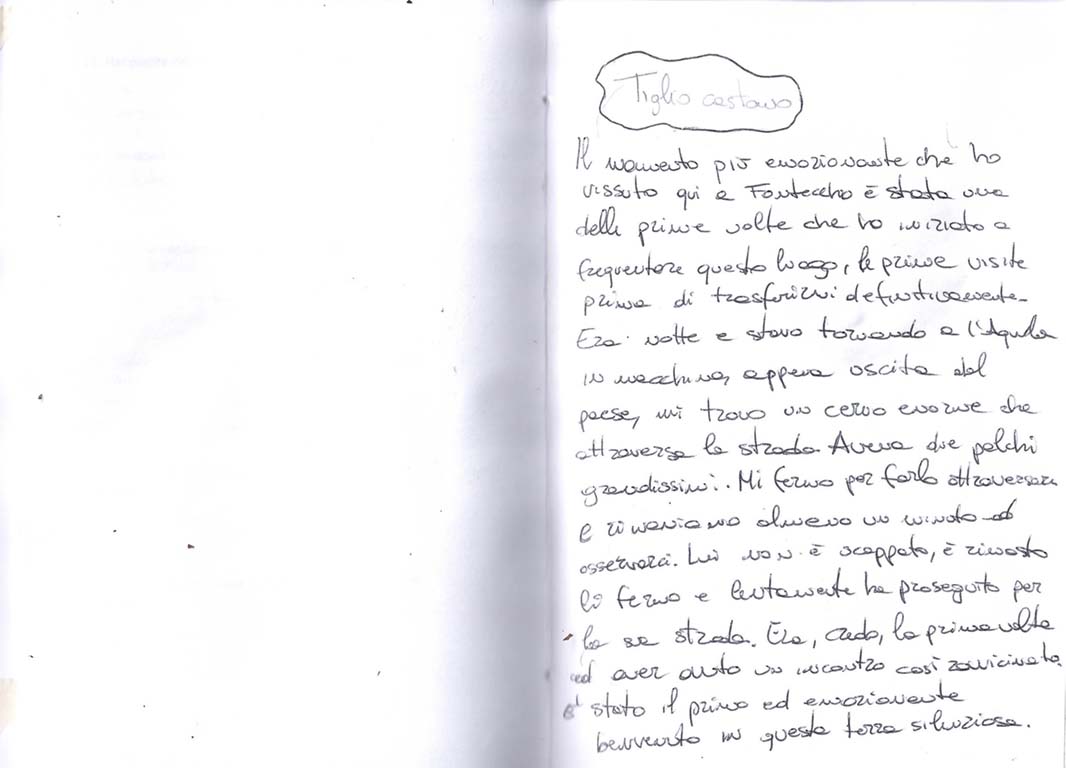 Tiglio castano
Il momento più emozionante che ho
vissuto qui a Fontecchio è stata una
delle prime volte che ho iniziato a
frequentare questo luogo, le prime visite
prima di trasferirmi definitivamente.
Era notte e stavo tornando a l'Aquila
in macchina, appena uscita dal
paese, mi trovo un cervo enorme che
attraversa la strada. Aveva due palchi
grandissimi. Mi fermo per farlo attraversare
e rimaniamo almeno un minuto ad
osservarci. Lui non è scappato, è rimasto
lì fermo e lentamente ha proseguito per
la sua strada. Era, credo, la prima volta
ad aver avuto un incontro così ravvicinato.
E' stato il primo ed emozionante
benvenuto in questa terra silenziosa.